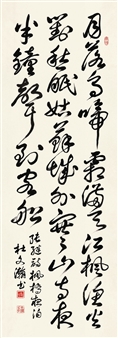 月落烏啼霜滿天江楓漁火
對愁眠姑蘇城外寒山寺夜
半鐘聲到客船
張繼詩楓橋夜泊
杜文書